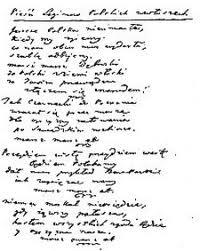 Pieśń Legionów Polskich we Włoszech
Jeszcze Polska nie umarła,
kiedy my żyjemy
co nam obca moc wydarła,
szablą odbijemy.
marsz marsz Dąbrowski
do Polski z ziemi włoski
za Twoim przewodem
złączem się z narodem
Jak Czarniecki do Poznania
wracał się przez morze
dla ojczyzny ratowania
po szwedzkim rozbiorze.
marsz marsz etc
Przejdziem Wisłę przejdziem Wartę
będziem Polakami
dał nam przykład Bonaparte
jak zwyciężać mamy
marsz marsz etc
Niemiec Moskal nie osiędzie,
gdy jąwszy pałasza,
hasłem wszystkich zgoda będzie
i ojczyzna nasza
marsz marsz etc